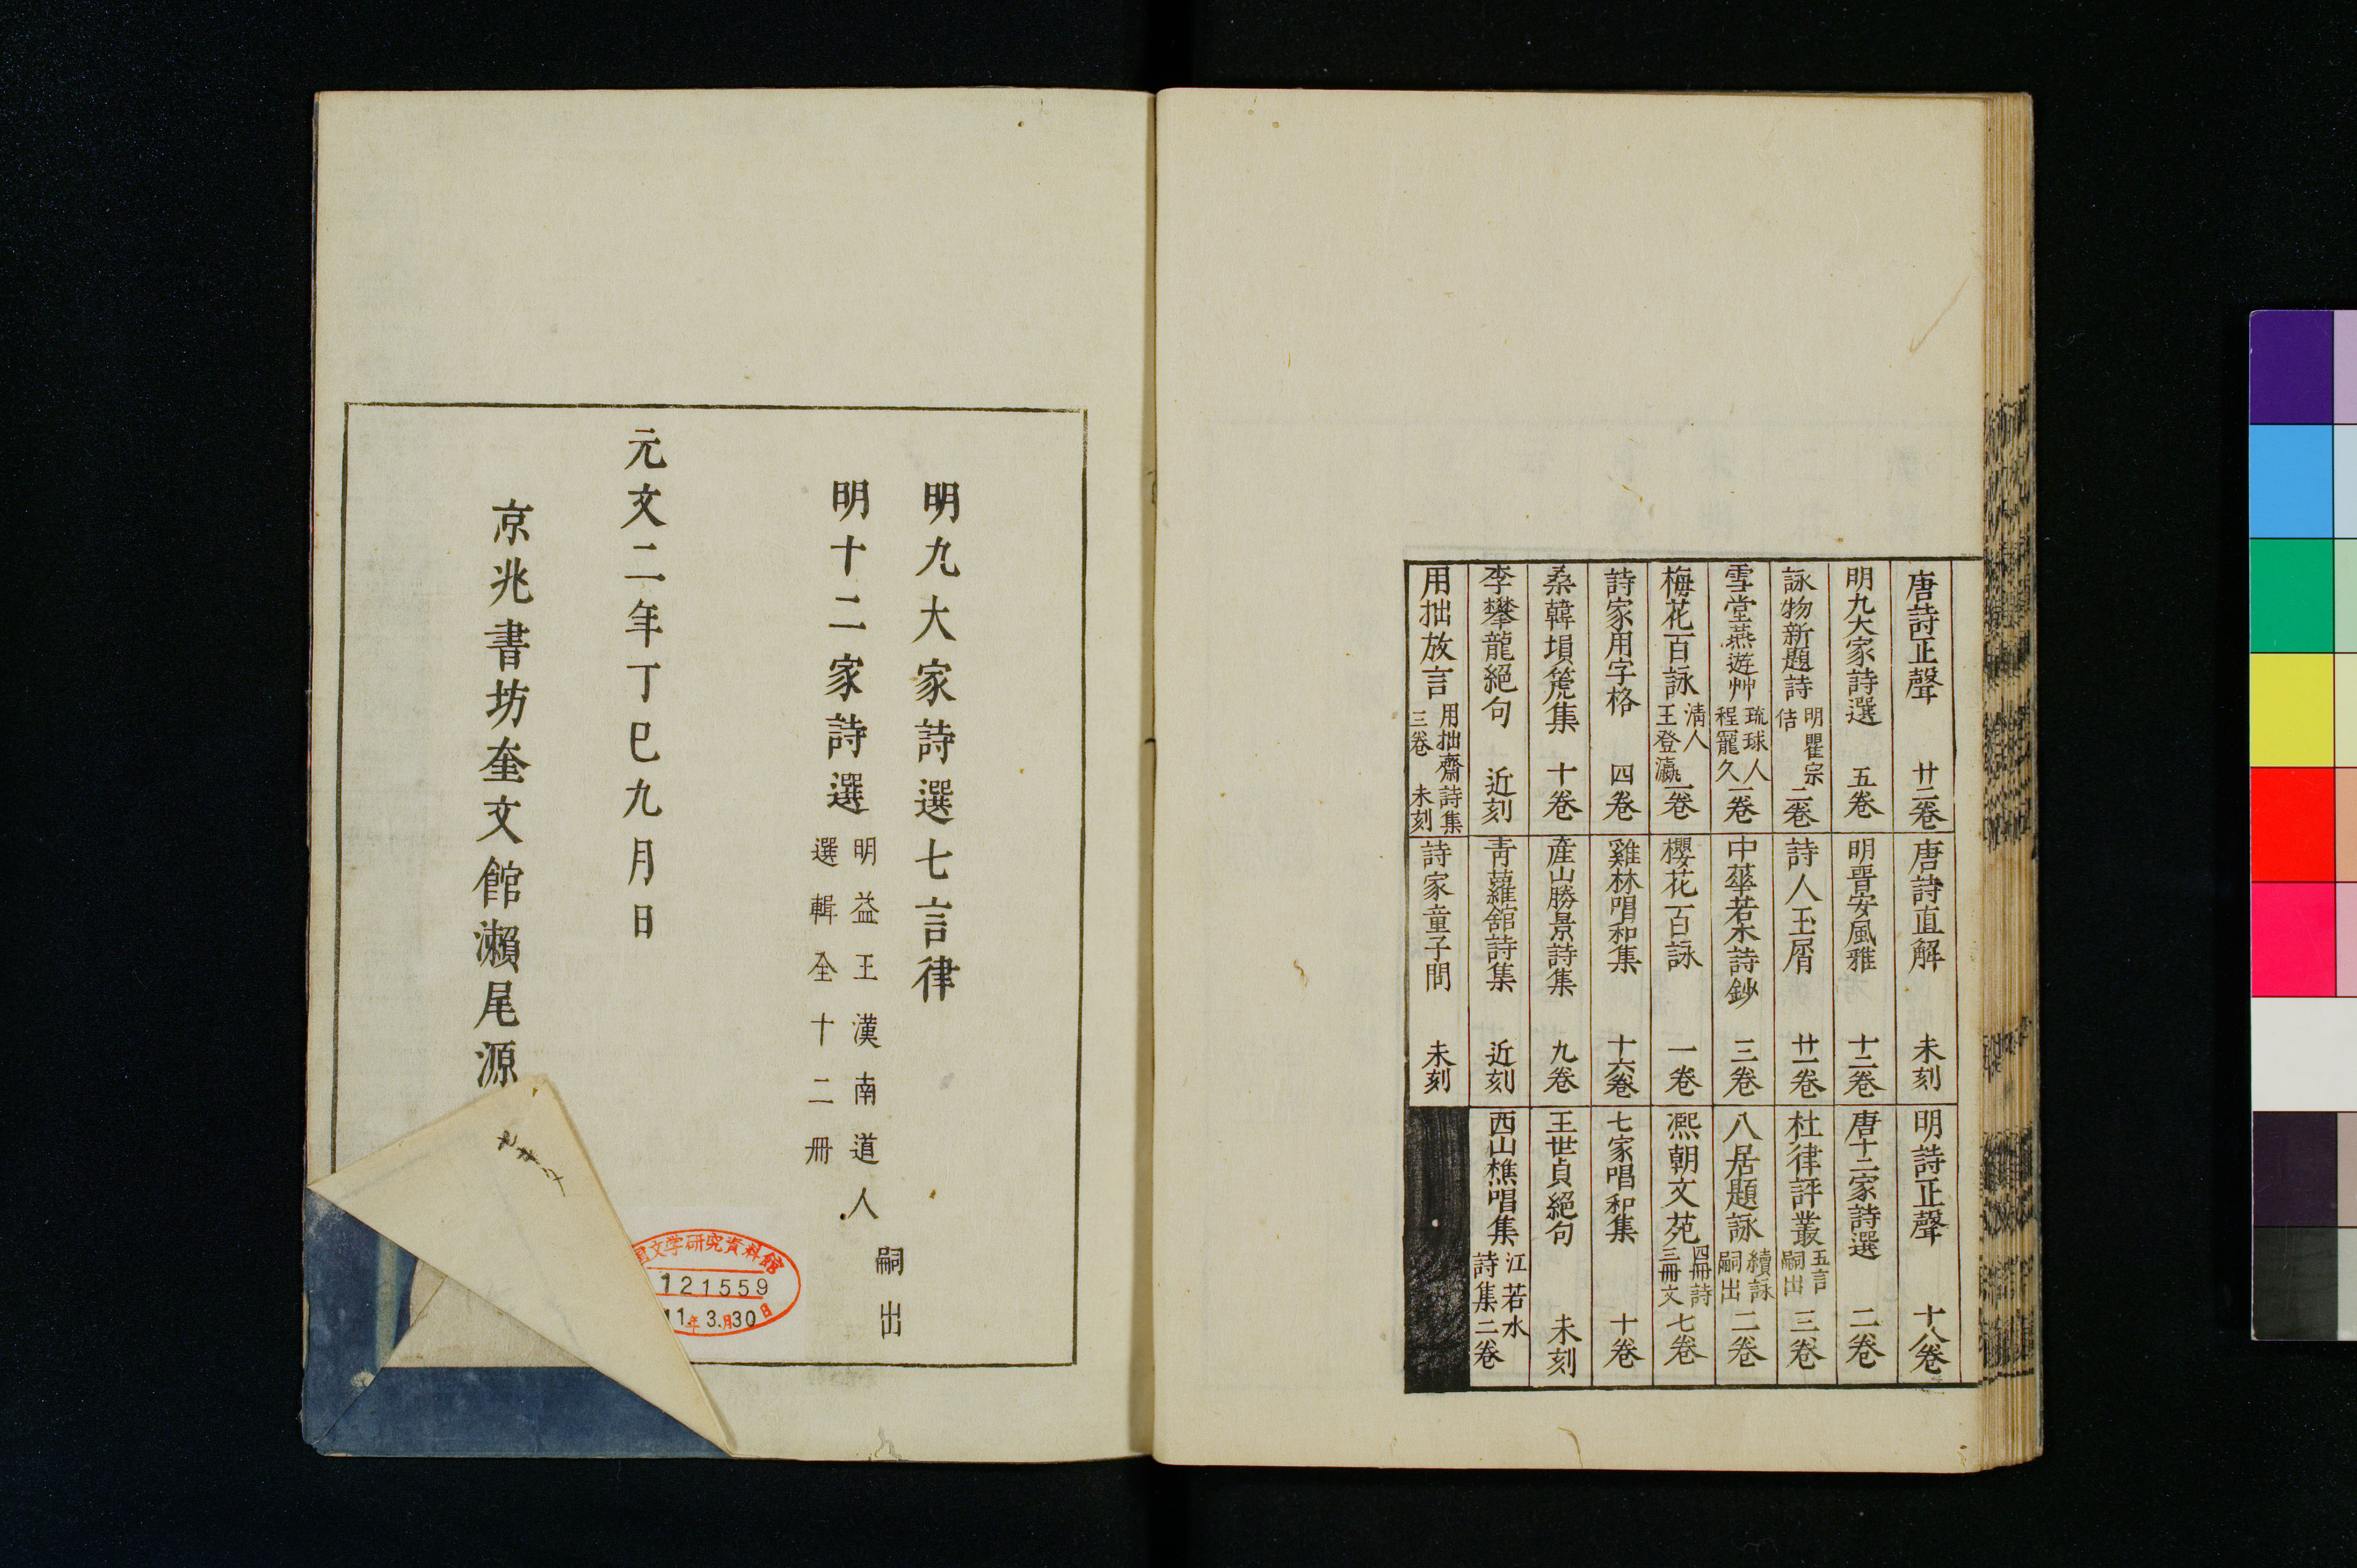 唐詩正聲 廿二卷
明九大家詩選 五卷
詠物新題詩 明瞿宗佶 二卷
雪堂燕遊艸 琉球人程寵久 一卷
梅花百詠 清人王登瀛 一卷
詩家用字格 四卷
桑韓塤箎集 十卷
李攀龍絕句 近刻
用拙放言 用拙齋詩集三卷 未刻
唐詩直解 未刻
明晋安風雅 十二卷
詩人玉屑 廿一卷
中華若木詩鈔 三卷
櫻花百詠 一卷
雞林唱和集 十六卷
産山勝景詩集 九卷
青蘿館詩集 近刻
詩家童子問 未刻
明詩正聲 十八卷
唐十二家詩選 二卷
杜律評叢 五言嗣出 三卷
八居題詠 續詠嗣出 二卷
凞朝文苑 四冊詩三冊文 七卷
七家唱和集 十卷
王世貞絕句 未刻
西山樵唱集 江若水詩集二卷
明九大家詩選七言律
明十二家詩選 明益王潢南道人選輯全十二冊
嗣出
元文二年丁巳九月日
京兆書坊奎文館瀨尾源
文学研究資料館
121559
11年3.月30日